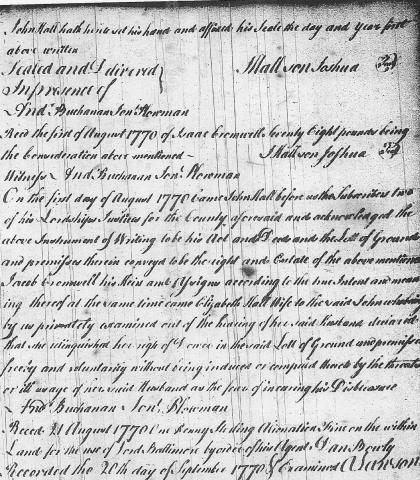 John Hall hath hereto set his hand and affixed his Seale the day and Year first
above written
Sealed and Delivered } J Hall son Joshua Seal
In presence of
And. Buchanan Jon. Plowman
Recd the first of August 1770 of Isaac Cromwell Seventy Eight pounds being
the Consideration above mentioned ~ J Hall son Joshua
Witness ~ And. Buchanan Jon. Plowman
On the first day of August 1770 Came John Hall before us the Subscribers two
of his Lordships Justices for the County aforesaid and acknowledged the
above Instrument of Writing to be his Act and Deed and the Lott of Ground
and premisses therein conveyd to be the right and Estate of the above mentioned
Jacob Cromwell his Heirs and Assigns according to the true Intent and mean
ing thereof at the same time came Elizabeth Hall Wife to the said John who being
by us privately examined out of the hearing of her said Husband declared
that she relinquished her righ of Dower in the said Lott of Ground and premises
freely and voluntarily without being induced or compeld thereto by the threats
or ill usage of her said Husband as the fear of incuring his Displeasure
~ And. Buchanan ~ Jon. Plowman
Reced 21 August 1770 One Penny Sterling Alienation Fine on the within
Land for the use of Lord Baltimore by order of his Agent, Dan Bowly
Recorded the 20th day of September 1770 & Examined Lawson